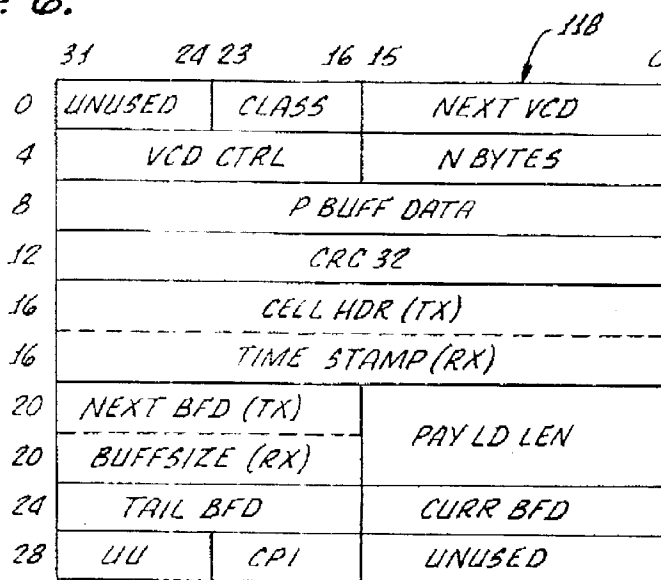 6.
118
31 24 23 16 15 0
0 UNUSED CLASS NEXT VCD
4 VCD CTRL N BYTES
8 P BUFF DATA
12 CRC 32
16 CELL HDR (TX)
16 TIME STAMP (RX)
20 NEXT BFD (TX)
PAY LD LEN
20 BUFFSIZE (RX)
24 TAIL BFD CURR BFD
28 UU CPI UNUSED